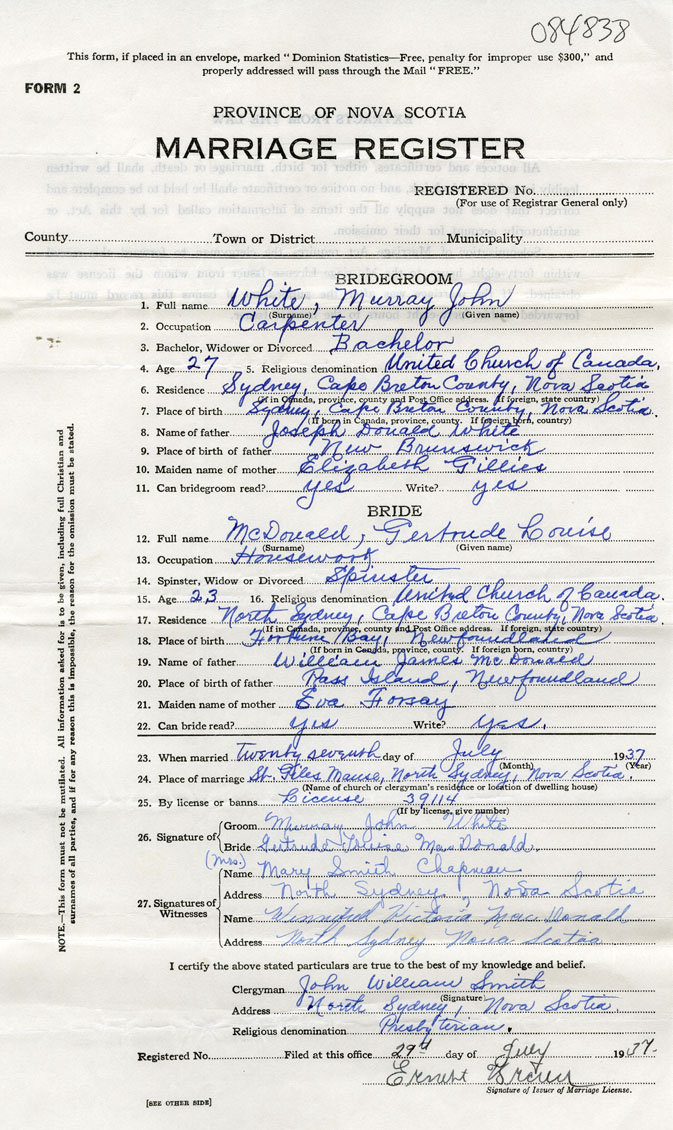 084838
This form, if placed in an envelope, marked "Dominion Statistics—Free, penalty for improper use $300," and
properly addressed will pass through the Mail "FREE."
FORM 2
PROVINCE OF NOVA SCOTIA
MARRIAGE REGISTER
REGISTERED No.
(For use of Registrar General only)
County Town or District Municipality
BRIDEGROOM
1. Full name White, Murray John
(Surname) (Given name)
2. Occupation Carpenter
3. Bachelor, Widower or Divorced Bachelor
4. Age 27 5. Religious denomination United Church of Canada.
6. Residence Sydney, Cape Breton County, Nova Scotia
(If in Canada, province, county and Post Office address. If foreign, state country)
7. Place of birth Sydney, Cape Breton County, Nova Scotia.
(If born in Canada, province, county. If foreign born, country)
8. Name of father Joseph Donald White
9. Place of birth of father New Brunswick
10. Maiden name of mother Elizabeth Gillies
11. Can bridegroom read? yes Write? yes
BRIDE
12. Full name McDonald, Gertrude Louise
(Surname) (Given name)
13. Occupation Housework
14. Spinster, Widow or Divorced Spinster
15. Age 23 16. Religious denomination United Church of Canada.
17. Residence North Sydney, Cape Breton County, Nova Scotia.
(If in Canada, province, county and Post Office address. If foreign, state country)
18. Place of birth Fortune Bay, Newfoundland
(If born in Canada, province, county. If foreign born, country)
19. Name of father William James McDonald
20. Place of birth of father Pass Island, Newfoundland
21. Maiden name of mother Eva Forsay
22. Can bride read? yes Write? yes.
23. When married twenty seventh day of July 1937
(Month) (Year)
24. Place of marriage St. Giles Manse, North Sydney, Nova Scotia.
(Name of church or clergyman's residence or location of dwelling house)
25. By license or banns. License 39114
(If by license, give number)
26. Signature of Groom Murray John White
Bride Gertrude Louise MacDonald.
27. Signatures of Witnesses
(Mrs.) Name Mary Smith Chapman
Address North Sydney, Nova Scotia
Name Winnifred Victoria MacDonald
Address North Sydney Nova Scotia
I certify the above stated particulars are true to the best of my knowledge and belief.
Clergyman John William Smith
(Signature)
Address North Sydney, Nova Scotia.
Religious denomination Presbyterian.
Registered No. Filed at this office 29th day of July 1937.
Ernest
Signature of Issuer of Marriage License.
[SEE OTHER SIDE]
NOTE.—This form must not be mutilated. All information asked for is to be given, including full Christian and
surnames of all parties, and if for any reason this is impossible, the reason for the omission must be stated.